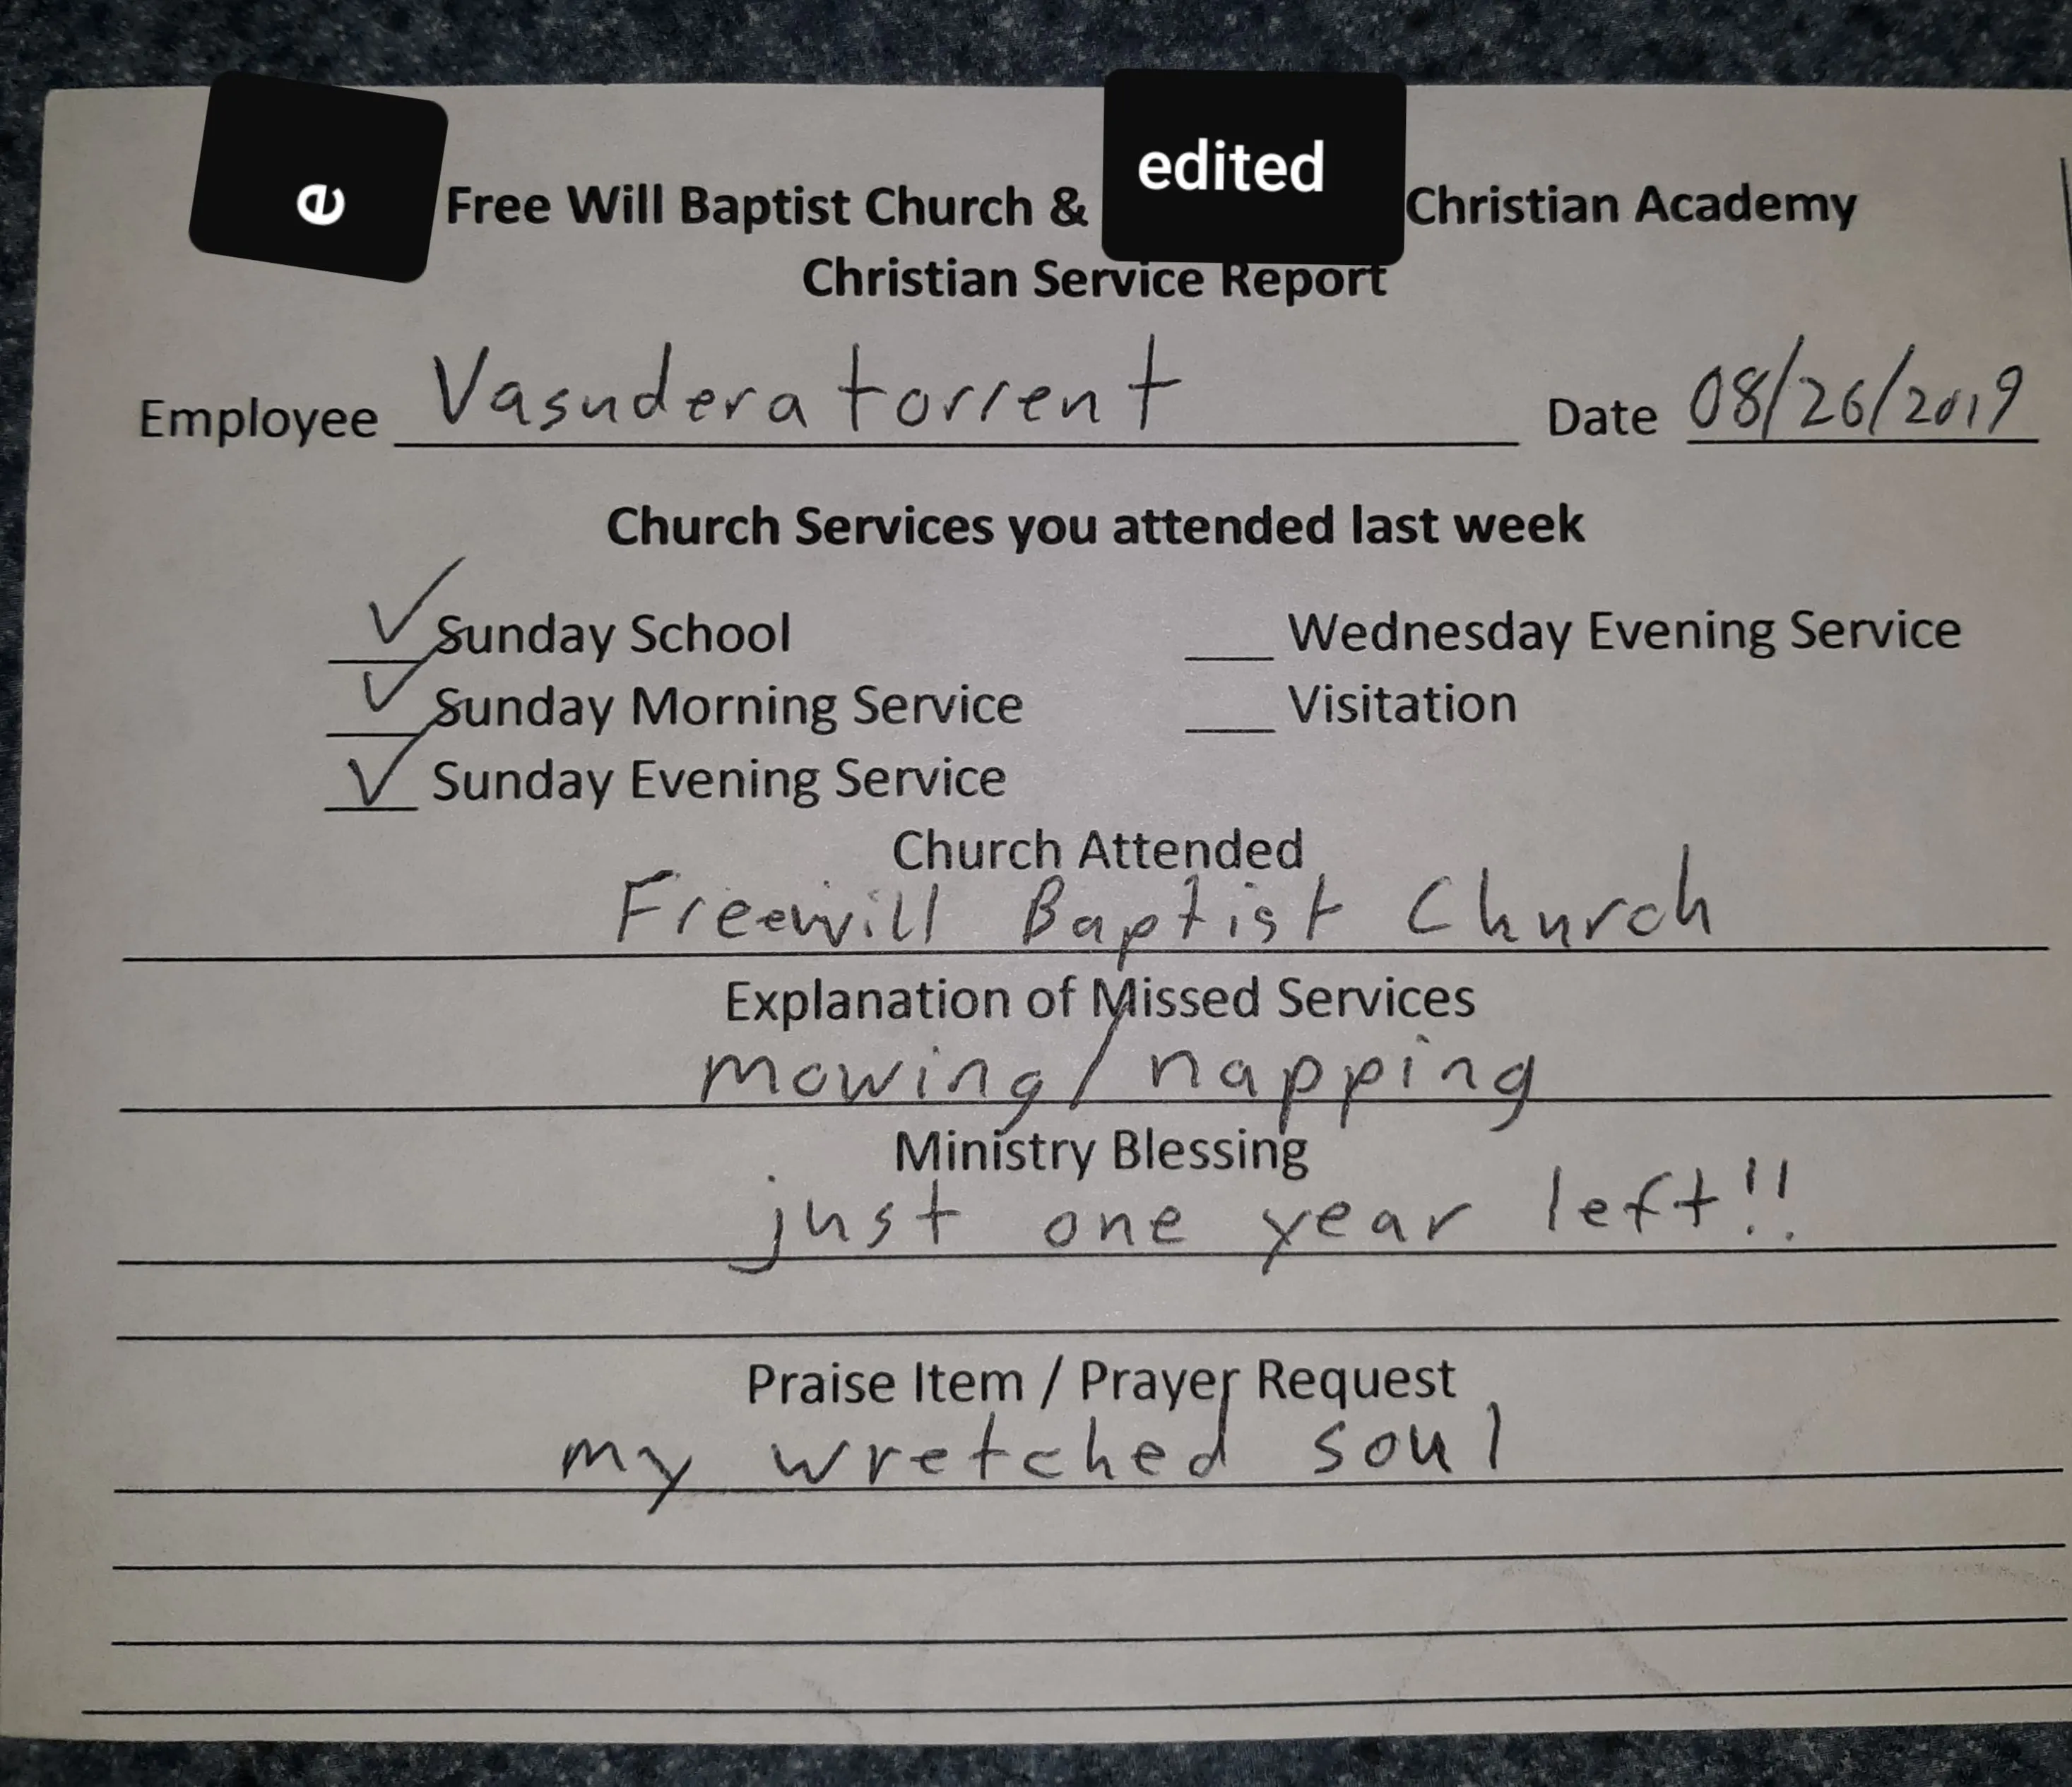 e Free Will Baptist Church & edited Christian Academy
Christian Service Report
Employee Vasudera torrent Date 08/26/2019
Church Services you attended last week
✓ Sunday School ___ Wednesday Evening Service
✓ Sunday Morning Service ___ Visitation
✓ Sunday Evening Service
Church Attended
Freewill Baptist Church
Explanation of Missed Services
mowing/napping
Ministry Blessing
just one year left!!
Praise Item / Prayer Request
my wretched soul